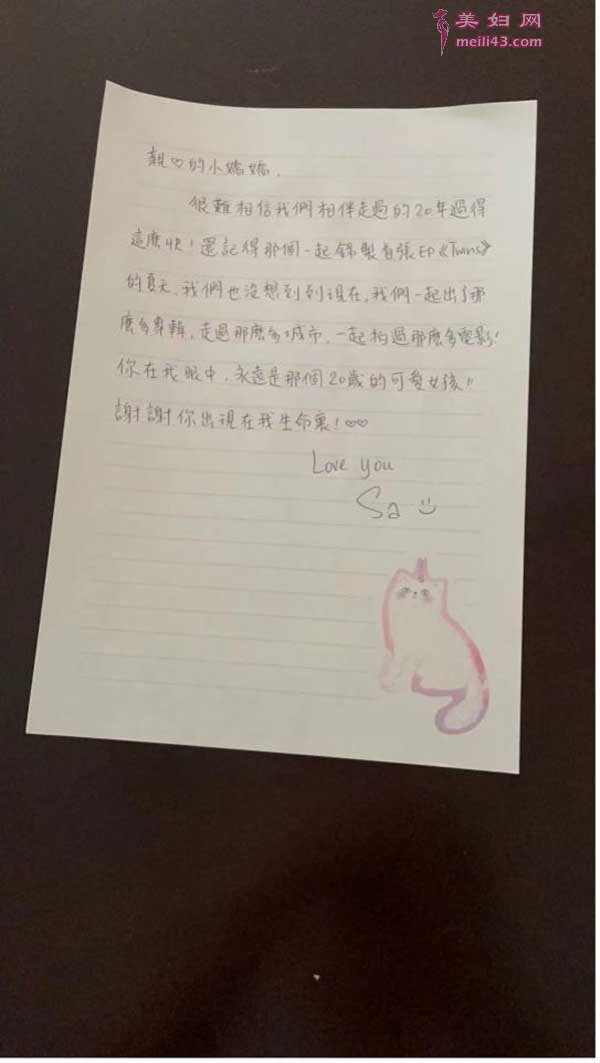 美妇网
meili43.com
親♡的小嬌嬌,
很難相信我們相伴走過的20年過得
這麼快!還記得那個一起錄製首張EP《Twins》
的夏天,我們也沒想到到現在,我們一起出了那
麼多專輯,走過那麼多城市,一起拍過那麼多電影!
你在我眼中,永遠是那個20歲的可愛女孩!!
謝謝你出現在我生命裏!♡♡
Love you
Sa